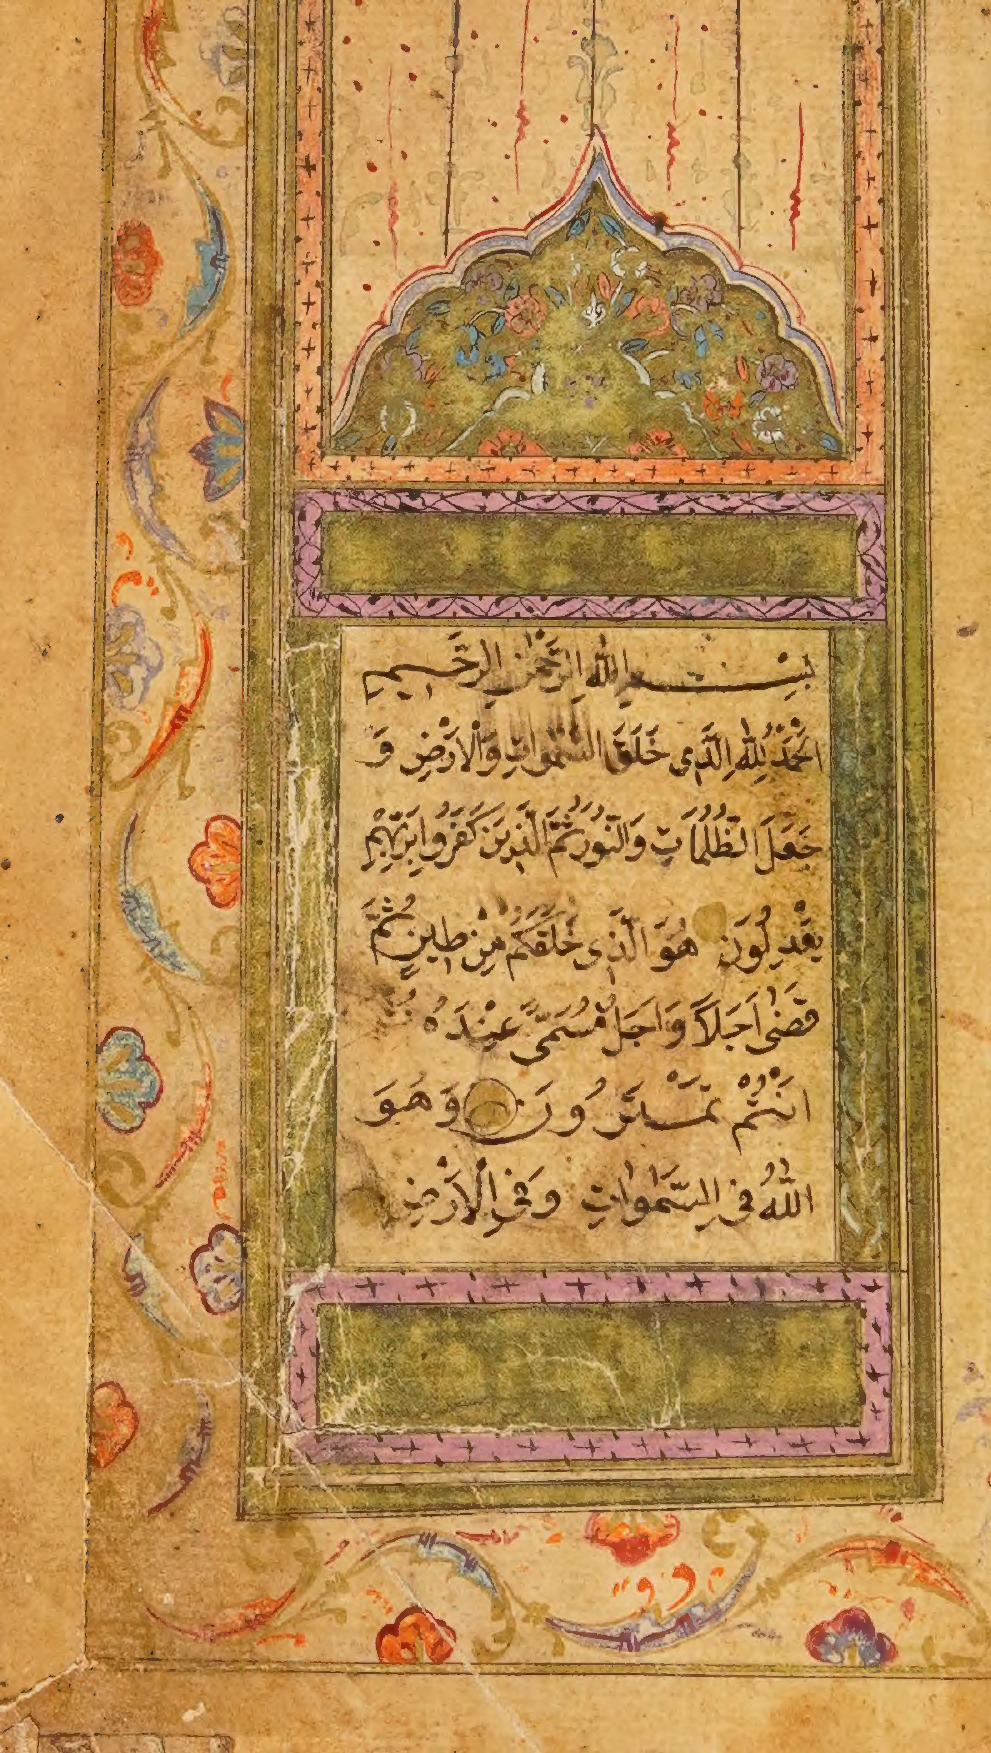 بِسْمِ اللهِ الرَّحْمٰنِ الرَّحِيمِ
اَلْحَمْدُ لِلّٰهِ الَّذِى خَلَقَ السَّمٰوَاتِ وَالْاَرْضِ وَ
جَعَلَ الظُّلُمَاتِ وَالنُّورَ ثُمَّ الَّذِينَ كَفَرُوا بِرَبِّهِمْ
يَعْدِلُونَ هُوَ الَّذِى خَلَقَكُمْ مِنْ طِينٍ ثُمَّ
قَضٰى اَجَلاً وَاَجَلٌ مُسَمًّى عِنْدَهُ ثُمَّ
اَنْتُمْ تَمْتَرُونَ وَهُوَ
اللّٰهُ فِى السَّمٰوَاتِ وَفِى الْاَرْضِ